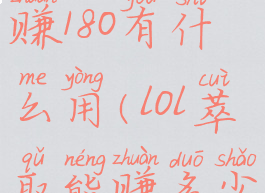 赚180有什
me yòng cuì
么用(lol萃
qǔ néng zhuàn duō shǎo
取能赚多少